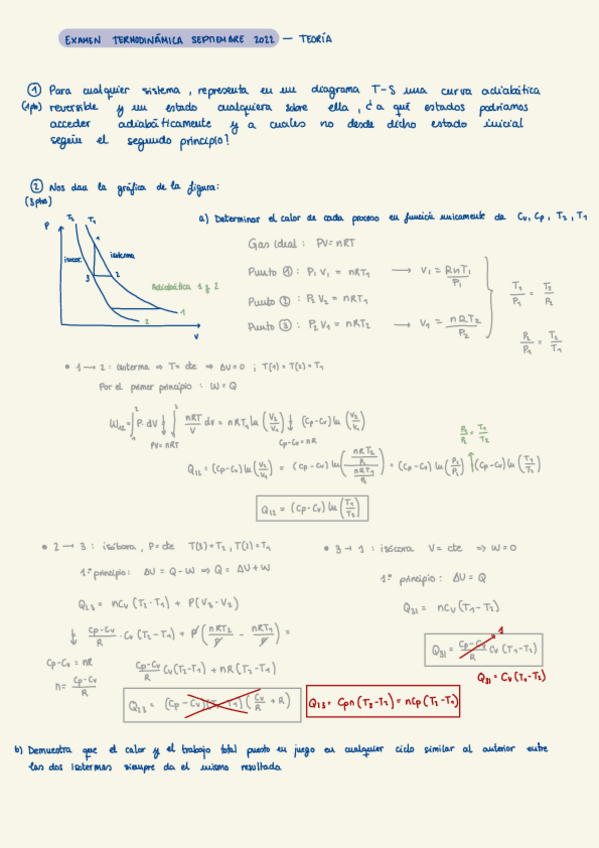 EXAMEN TERMODINÁMICA SEPTIEMBRE 2022 — TEORÍA
① Para cualquier sistema, representa en un diagrama T-S una curva adiabática
(1pto) reversible y un estado cualquiera sobre ella, ¿a qué estados podríamos
acceder adiabáticamente y a cuales no desde dicho estado inicial
según el segundo principio?
② Nos dan la gráfica de la figura:
(3ptos)
a) Determinar el calor de cada proceso en función unicamente de Cv, Cp, T2, T1
P T2 T1
isocor. isoterma
3 2
Adiabática 1 y 2
1
2
V
Gas ideal: PV = nRT
Punto ①: P1 V1 = nRT1 → V1 = RnT1/P1
Punto ②: P2 V2 = nRT1
Punto ③: P2 V1 = nRT2 → V1 = nRT2/P2
T1/P1 = T2/P2
P2/P1 = T2/T1
• 1 → 2: isoterma ⇒ T = cte ⇒ ΔU = 0 ; T(1) = T(2) = T1
Por el primer principio: W = Q
W12 = ∫₁² P·dV ↓ ∫₁² nRT/V dv = nRT1 ln(V2/V1) ↓ (Cp-Cv) ln(V2/V1)
PV = nRT Cp-Cv = nR
Q12 = (Cp-Cv) ln(V2/V1) = (Cp-Cv) ln
= (Cp-Cv) ln(P1/P2) ↑ (Cp-Cv) ln(T1/T2)
Q12 = (Cp - Cv) ln(T1/T2)
• 2 → 3: isóbara, P = cte T(3) = T2, T(2) = T1
1er principio: ΔU = Q - W ⇒ Q = ΔU + W
Q23 = nCv (T2-T1) + P(V3-V2)
↓ Cp-Cv/R · Cv (T2-T1) + P(nRT2/P - nRT1/P) =
Cp-Cv = nR
n = Cp-Cv/R
Cp-Cv/R Cv(T2-T1) + nR(T2-T1)
Q23 = (Cp-Cv)(T2-T1)(Cv/R + R)
Q23 = Cpn(T3-T2) = nCp(T2-T1)
• 3 → 1: isócora V = cte ⇒ W = 0
1er principio: ΔU = Q
Q31 = nCv (T1-T2)
1
Q31 = Cp-Cv/R Cv (T1-T2)
Q31 = Cv(T1-T2)
b) Demuestra que el calor y el trabajo total puesto en juego en cualquier ciclo similar al anterior entre
las dos isotermas siempre da el mismo resultado